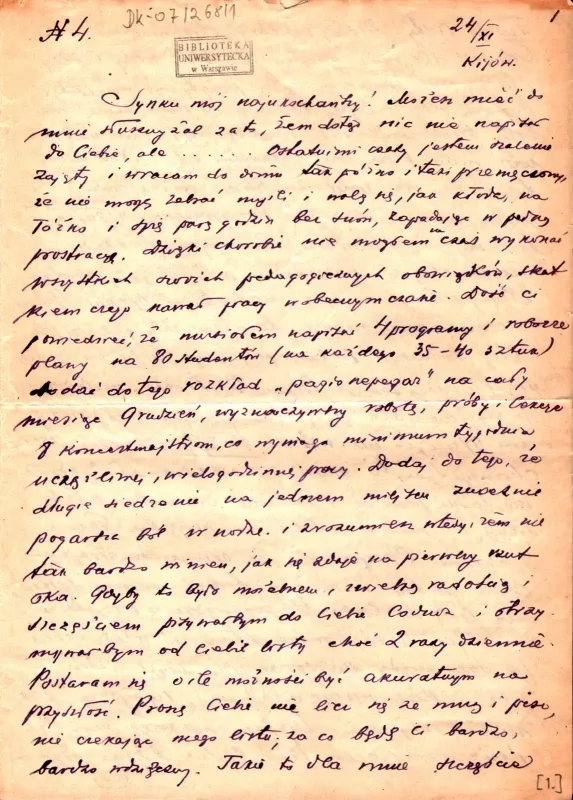 № 4.
DK-07/268/1
1
BIBLIOTEKA
UNIWERSYTECKA
w Warszawie
24/XI
Kijów.
Synku mój najukochańszy! Możesz mieć do
mnie słuszny żal za to, żem dotąd nic nie napisał
do Ciebie, ale ...... Ostatnimi czasy jestem szalenie
zajęty i wracam do domu tak późno i taki przemęczony,
że nie mogę zebrać myśli i walę się, jak kłoda, na
łóżko i śpię parę godzin bez snów, zapadając w pełną
prostrację. Dzięki chorobie nie mogłem na czas wykonać
wszystkich swoich pedagogicznych obowiązków, skut
kiem czego nawał pracy w obecnym czasie. Dość ci
powiedzieć, że musiałem napisać 4 programy i robocze
plany na 80 studentów (na każdego 35-40 sztuk)
dodać do tego rozkład „радіопередач" na cały
miesiąc Grudzień, wyznaczywszy robotę, próby i lekcje
8 koncertmajstrom, co wymaga minimum tygodnia
uciążliwej, wielogodzinnej pracy. Dodaj do tego, że
długie siedzenie na jednem miejscu znacznie
pogarsza ból w nodze. i zrozumiesz wtedy, żem nie
tak bardzo winien, jak się zdaje na pierwszy rzut
oka. Gdyby to było możebnem, z wielką radością i
szczęściem pisywałbym do Ciebie codzień i otrzy
mywałbym od Ciebie listy choć 2 razy dziennie.
Postaram się o ile możności być akuratnym na
przyszłość. Proszę Ciebie nie licz się ze mną i pisz,
nie czekając mego listu; za co będę Ci bardzo,
bardzo wdzięczny. Takie to dla mnie szczęście
[1.]